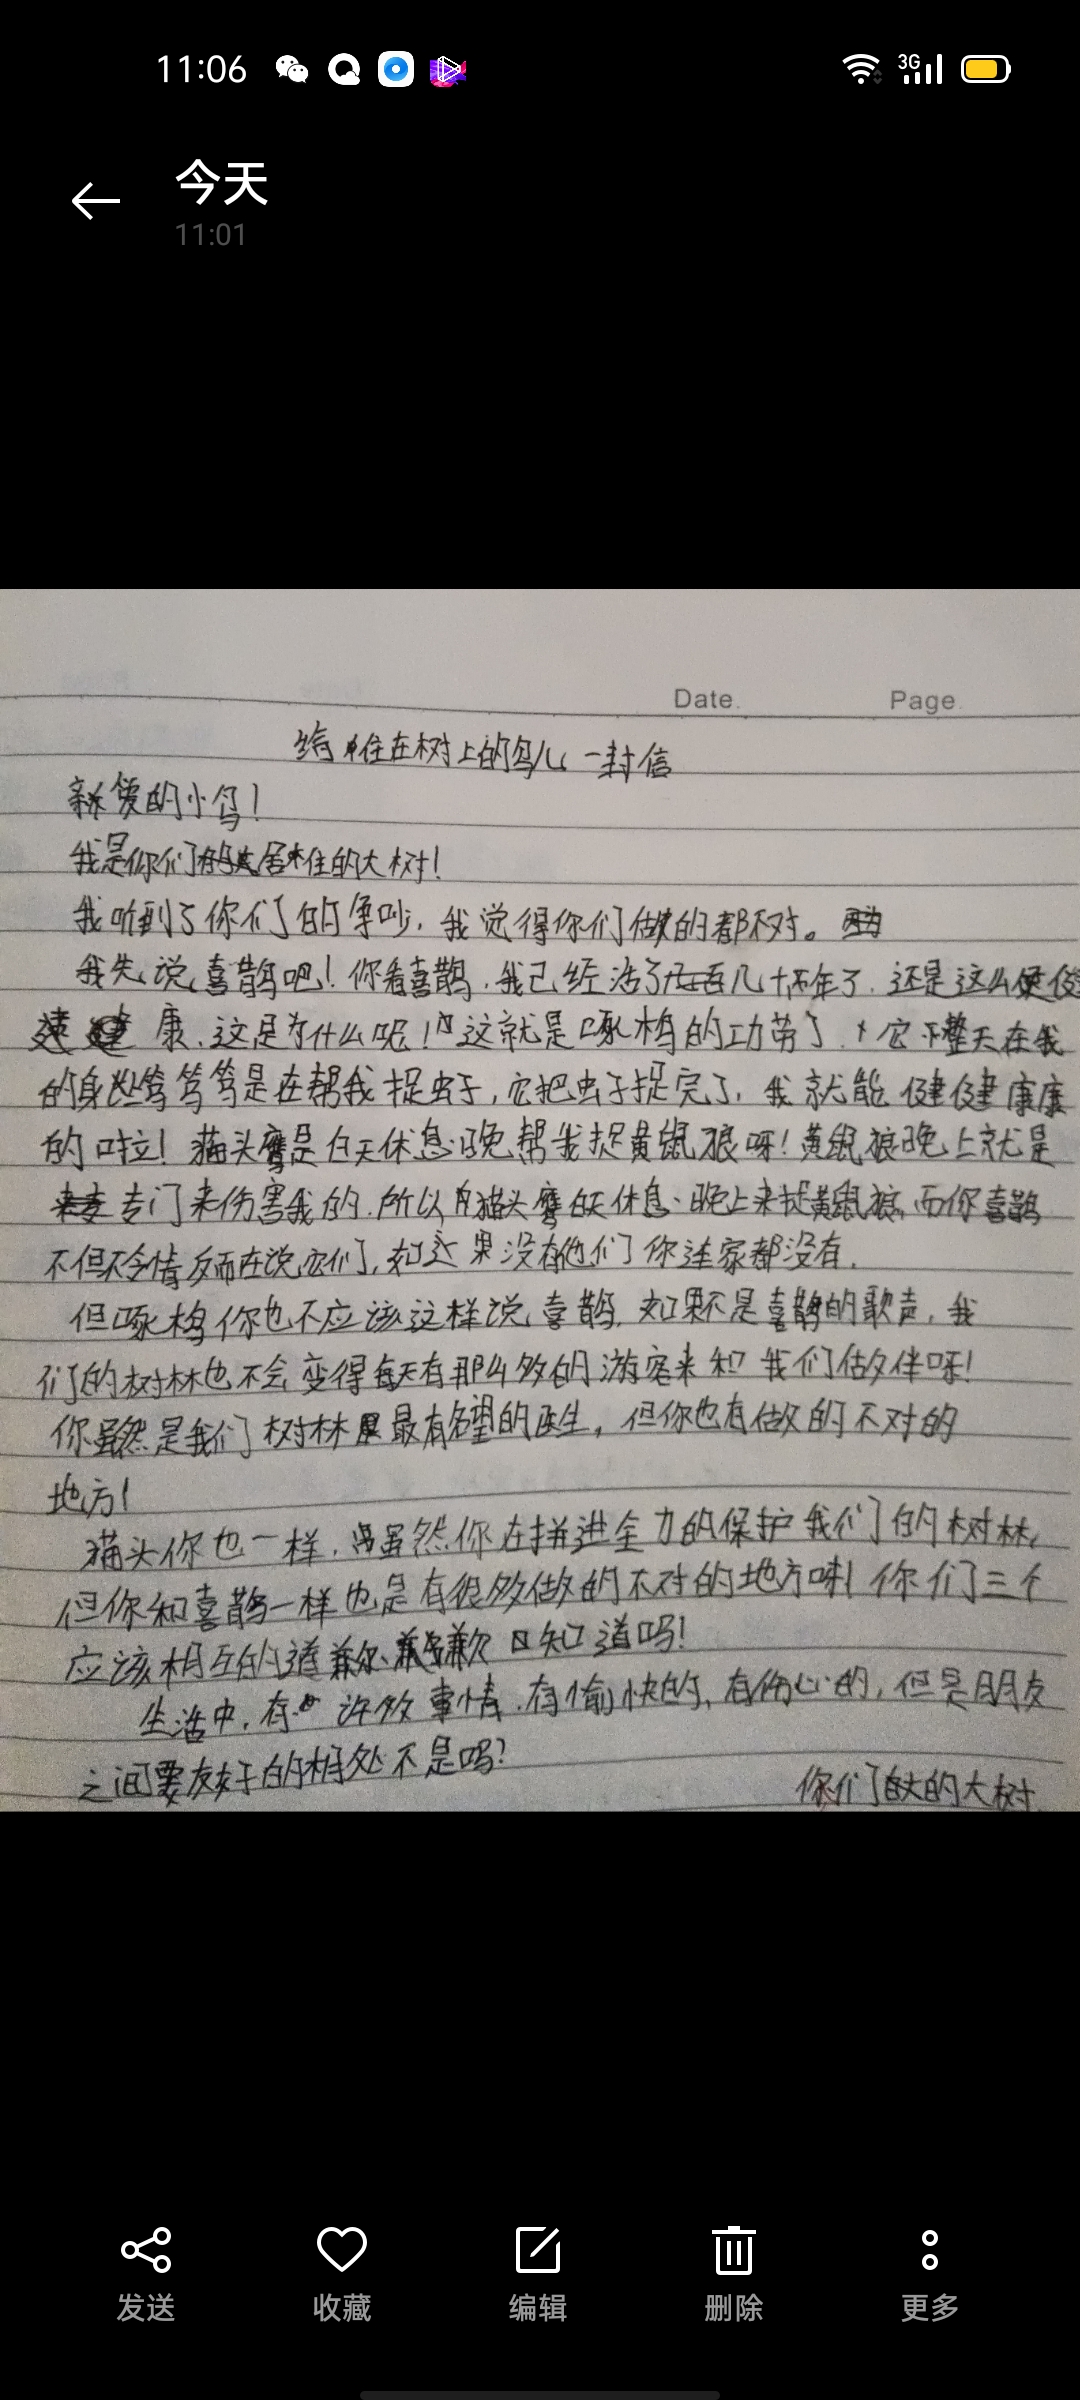 11:06
3G
今天
11:01
Date.
Page.
给住在树上的鸟儿一封信
亲爱的小鸟！
我是你们居住的大树！
我听到了你们的争吵，我觉得你们做的都不对。因为
我先说喜鹊吧！你看喜鹊，我已经活了几十年了，还是这么健
康，这是为什么呢！这就是啄木鸟的功劳了，它整天在我
的身上笃笃笃是在帮我捉虫子，它把虫子捉完了，我就能健健康康
的啦！猫头鹰是白天休息晚帮我捉黄鼠狼呀！黄鼠狼晚上就是
专门来伤害我的，所以猫头鹰白天休息、晚上来捉黄鼠狼，而你喜鹊
不但不领情反而在说它们，如果没有他们你连家都没有，
但啄木鸟你也不应该这样说喜鹊，如果不是喜鹊的歌声，我
们的树林也不会变得每天有那么多的游客来和我们做伴呀！
你虽然是我们树林里最有名望的医生，但你也有做的不对的
地方！
猫头你也一样，虽然你在拼进全力的保护我们的树林，
但你和喜鹊一样也是有很多做的不对的地方哦！你们三个
应该相互的道歉知道吗！
生活中，有许多事情，有愉快的，有伤心的，但是朋友
之间要友好的相处不是吗？
你们的大树
发送
收藏
编辑
删除
更多